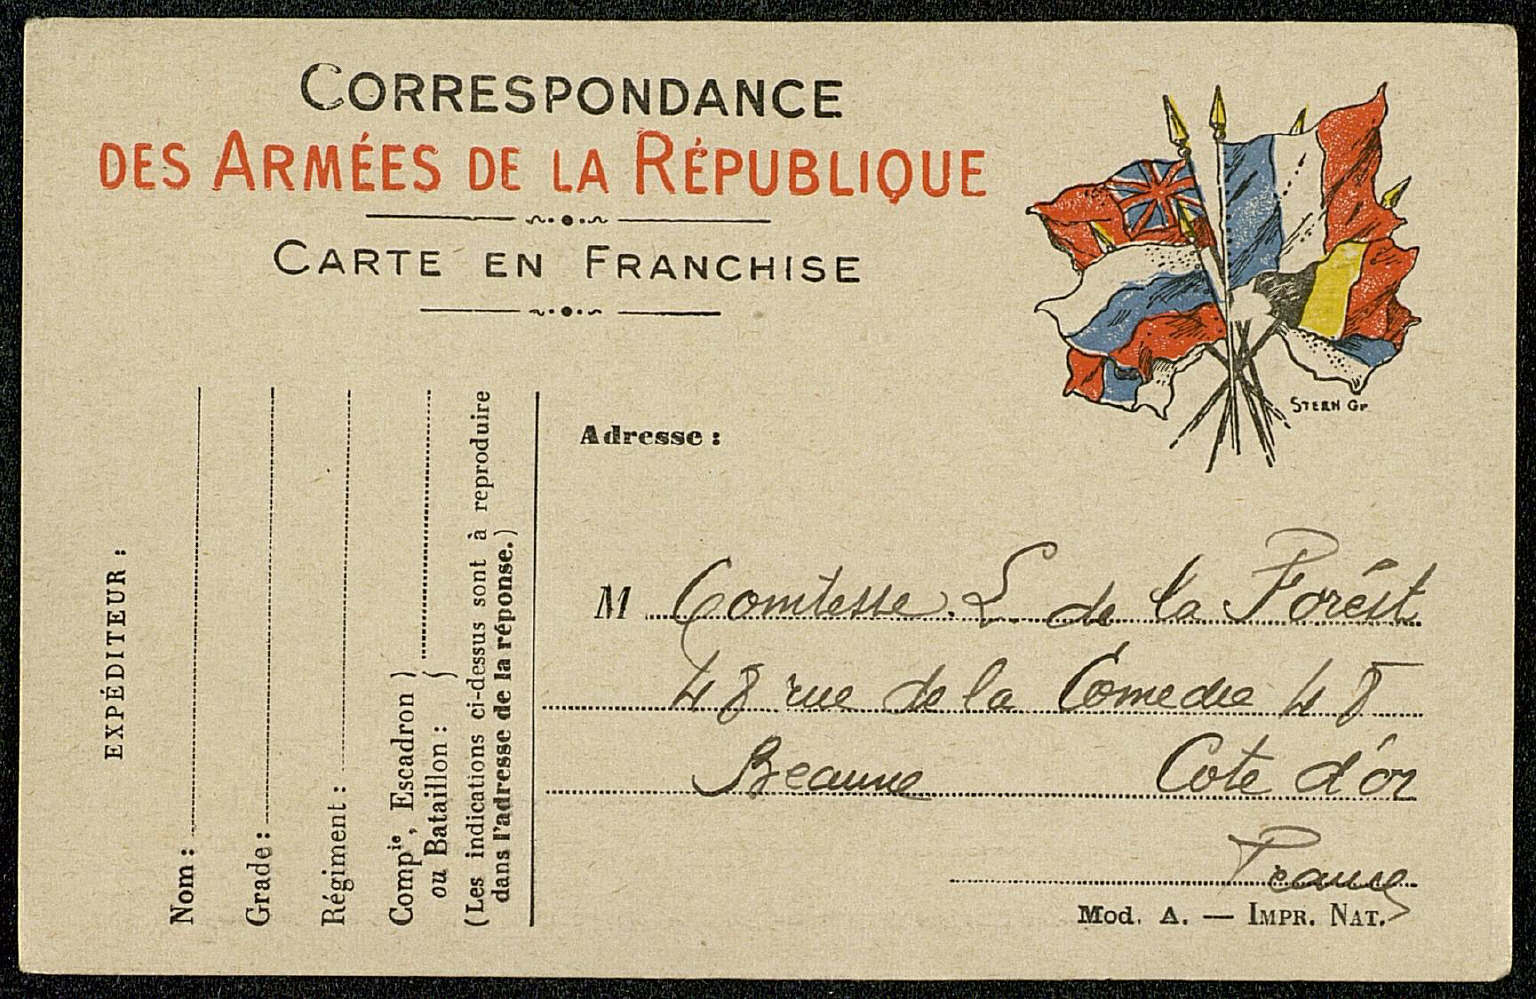 CORRESPONDANCE
DES ARMÉES DE LA RÉPUBLIQUE
CARTE EN FRANCHISE
STERN Gr.
EXPÉDITEUR :
Nom :
Grade :
Régiment :
Comp^ie, Escadron }
ou Bataillon : }
(Les indications ci-dessus sont à reproduire
dans l'adresse de la réponse.)
Adresse :
M Comtesse. L. de la Forést
48 rue de la Comedie 48
Beaune Cote d'or
France
Mod. A. — IMPR. NAT.